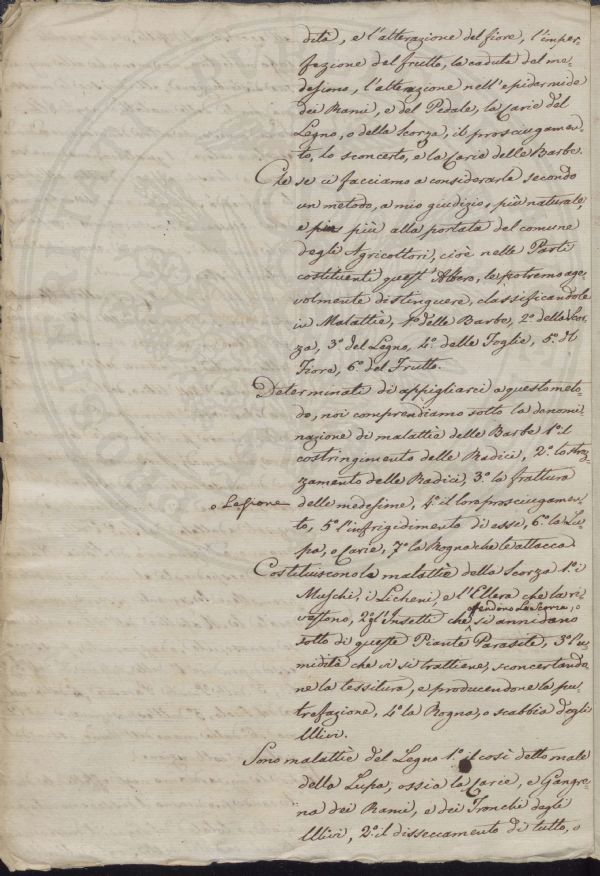 dità, e l'alterazione del fiore, l'imper-
fezione del frutto, la caduta del me-
desimo, l'alterazione nell'epidermide
dei Rami, e del Pedale, la Carie del
Legno, o della Scorza, il prosciugamen-
to, lo sconcerto, e la Carie delle Barbe.
Che se ci facciamo a considerarle secondo
un metodo, a mio giudizio, più naturale,
e più alla portata del comune
degli Agricoltori, cioè nelle Parti
costituenti quest'Albero, le potremo age-
volmente distinguere, classificandole
in Malattie, 1º delle Barbe, 2º della Scor-
za, 3º del Legno, 4º delle Foglie, 5º del
Fiore, 6º del Frutto.
Determinati di appigliarci a questo meto-
do, noi comprendiamo sotto la denomi-
nazione di malattie delle Barbe 1º il
costringimento delle Radici, 2º lo stroz-
zamento delle Radici, 3º la frattura
o Lesione
delle medesime, 4º il loro prosciugamen-
to, 5º l'infrigidimento di esse, 6º la Lu-
pa, o Carie, 7º la Rogna che le attacca.
Costituiscono le malattie della Scorza 1º i
Muschi, i Licheni, e l'Ellera che la ri-
vestono, 2º gl'Insetti che offendono la Scorza, o si annidano
sotto di queste Piante Parasite, 3º l'u-
midità che vi si trattiene, sconcertando-
ne la tessitura, e producendone la pu-
trefazione, 4º la Rogna, o scabbia degli
Ulivi.
Sono malattie del Legno 1º il così detto male
della Lupa, ossia la Carie, e Gangre-
na dei Rami, e dei Tronchi degli
Ulivi, 2º il disseccamento di tutto, o